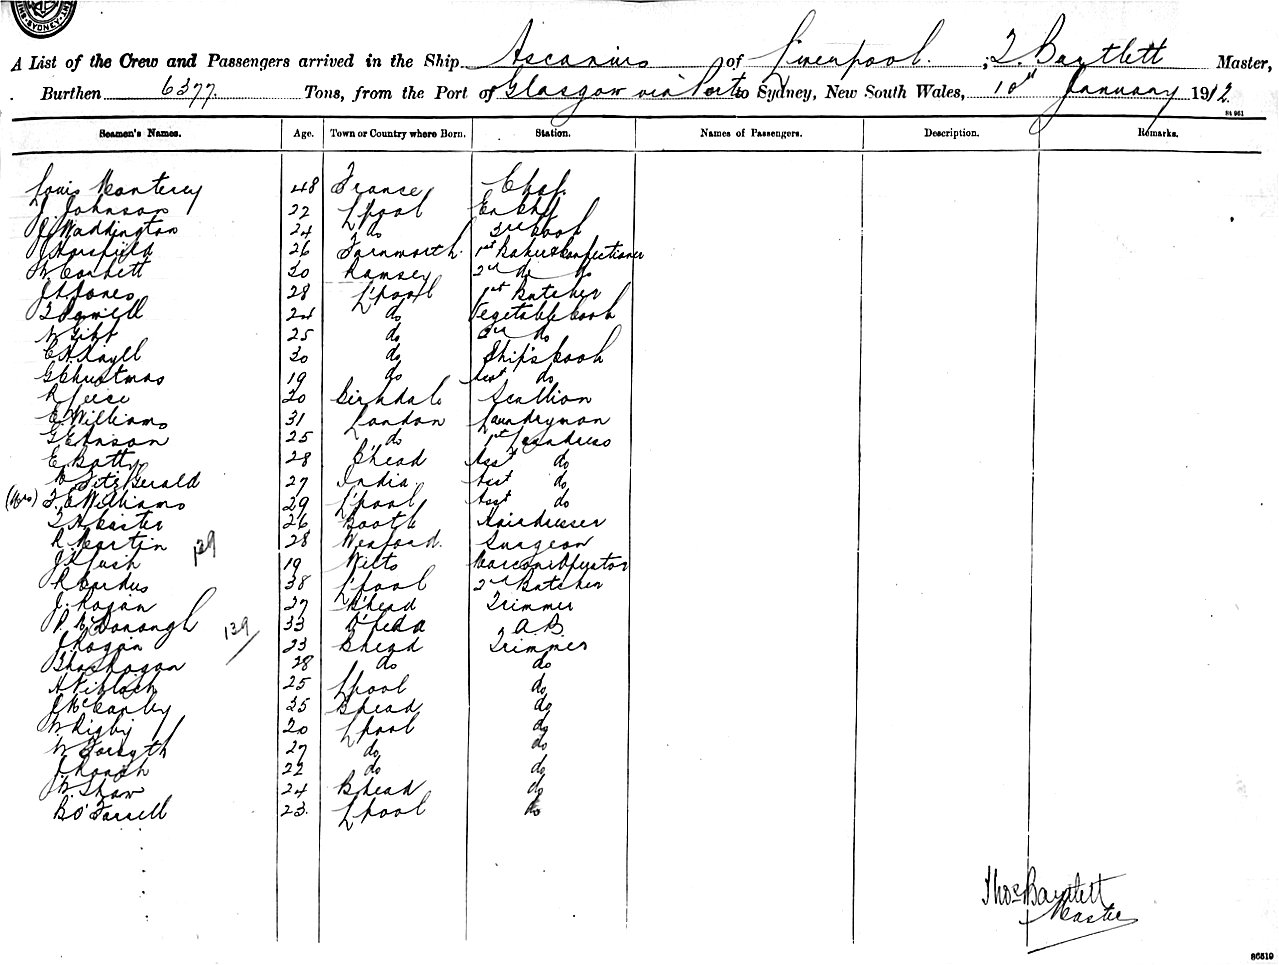 SYDNEY
A List of the Crew and Passengers arrived in the Ship Ascanius of Liverpool. ; T. Bartlett Master,
Burthen 6377. Tons, from the Port of Glasgow via Ports to Sydney, New South Wales, 10th January 1912.
Seamen's Names. Age. Town or Country where Born. Station. Names of Passengers. Description. Remarks.
Louis Monterey 48 France Chef.
J. Johnson 22 L'pool
J Waddington 24 do 3rd Cook
J Horsfield 26 Farnworth. 1st Baker & Confectioner
W. Corbett 30 Ramsey 2nd do do
J A Jones 28 L'pool 1st Butcher
24 do Vegetable Cook
W Gibb 25 do do
C H Kayll 30 do Ship's Cook
G Christmas 19 do Asst do
R Leese 20 Birkdale Scullion
E Williams 31 London Laundryman
G E Anson 25 do 1st Laundress
E Batty 28 B'head Asst do
Fitz Gerald 27 India Asst do
(Mrs) F. E Williams 29 L'pool Asst do
26 Bootle Hairdresser
R. Martin 139 28 Wexford. Surgeon
19 Wilts Marconi Operator
R Cardus 38 L'pool 2nd Butcher
J. Hogan 27 B'head Trimmer
P. McDonough 139 33 A.B.
J Hogan 23 B'head Trimmer
Thos Hogan 28 do do
A Niblock 25 L'pool do
J McCauley 35 B'head do
W Rigby 20 L'pool do
W Forsyth 27 do do
J Roach 22 do do
W Shaw 24 B'head do
B O'Farrell 23. L'pool do
Thos Bartlett
Master
86519